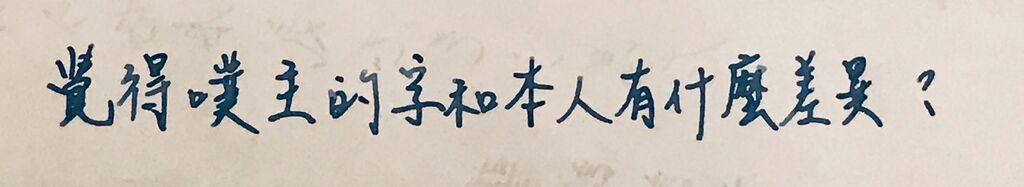 覺得噗主的字和本人有什麼差異？